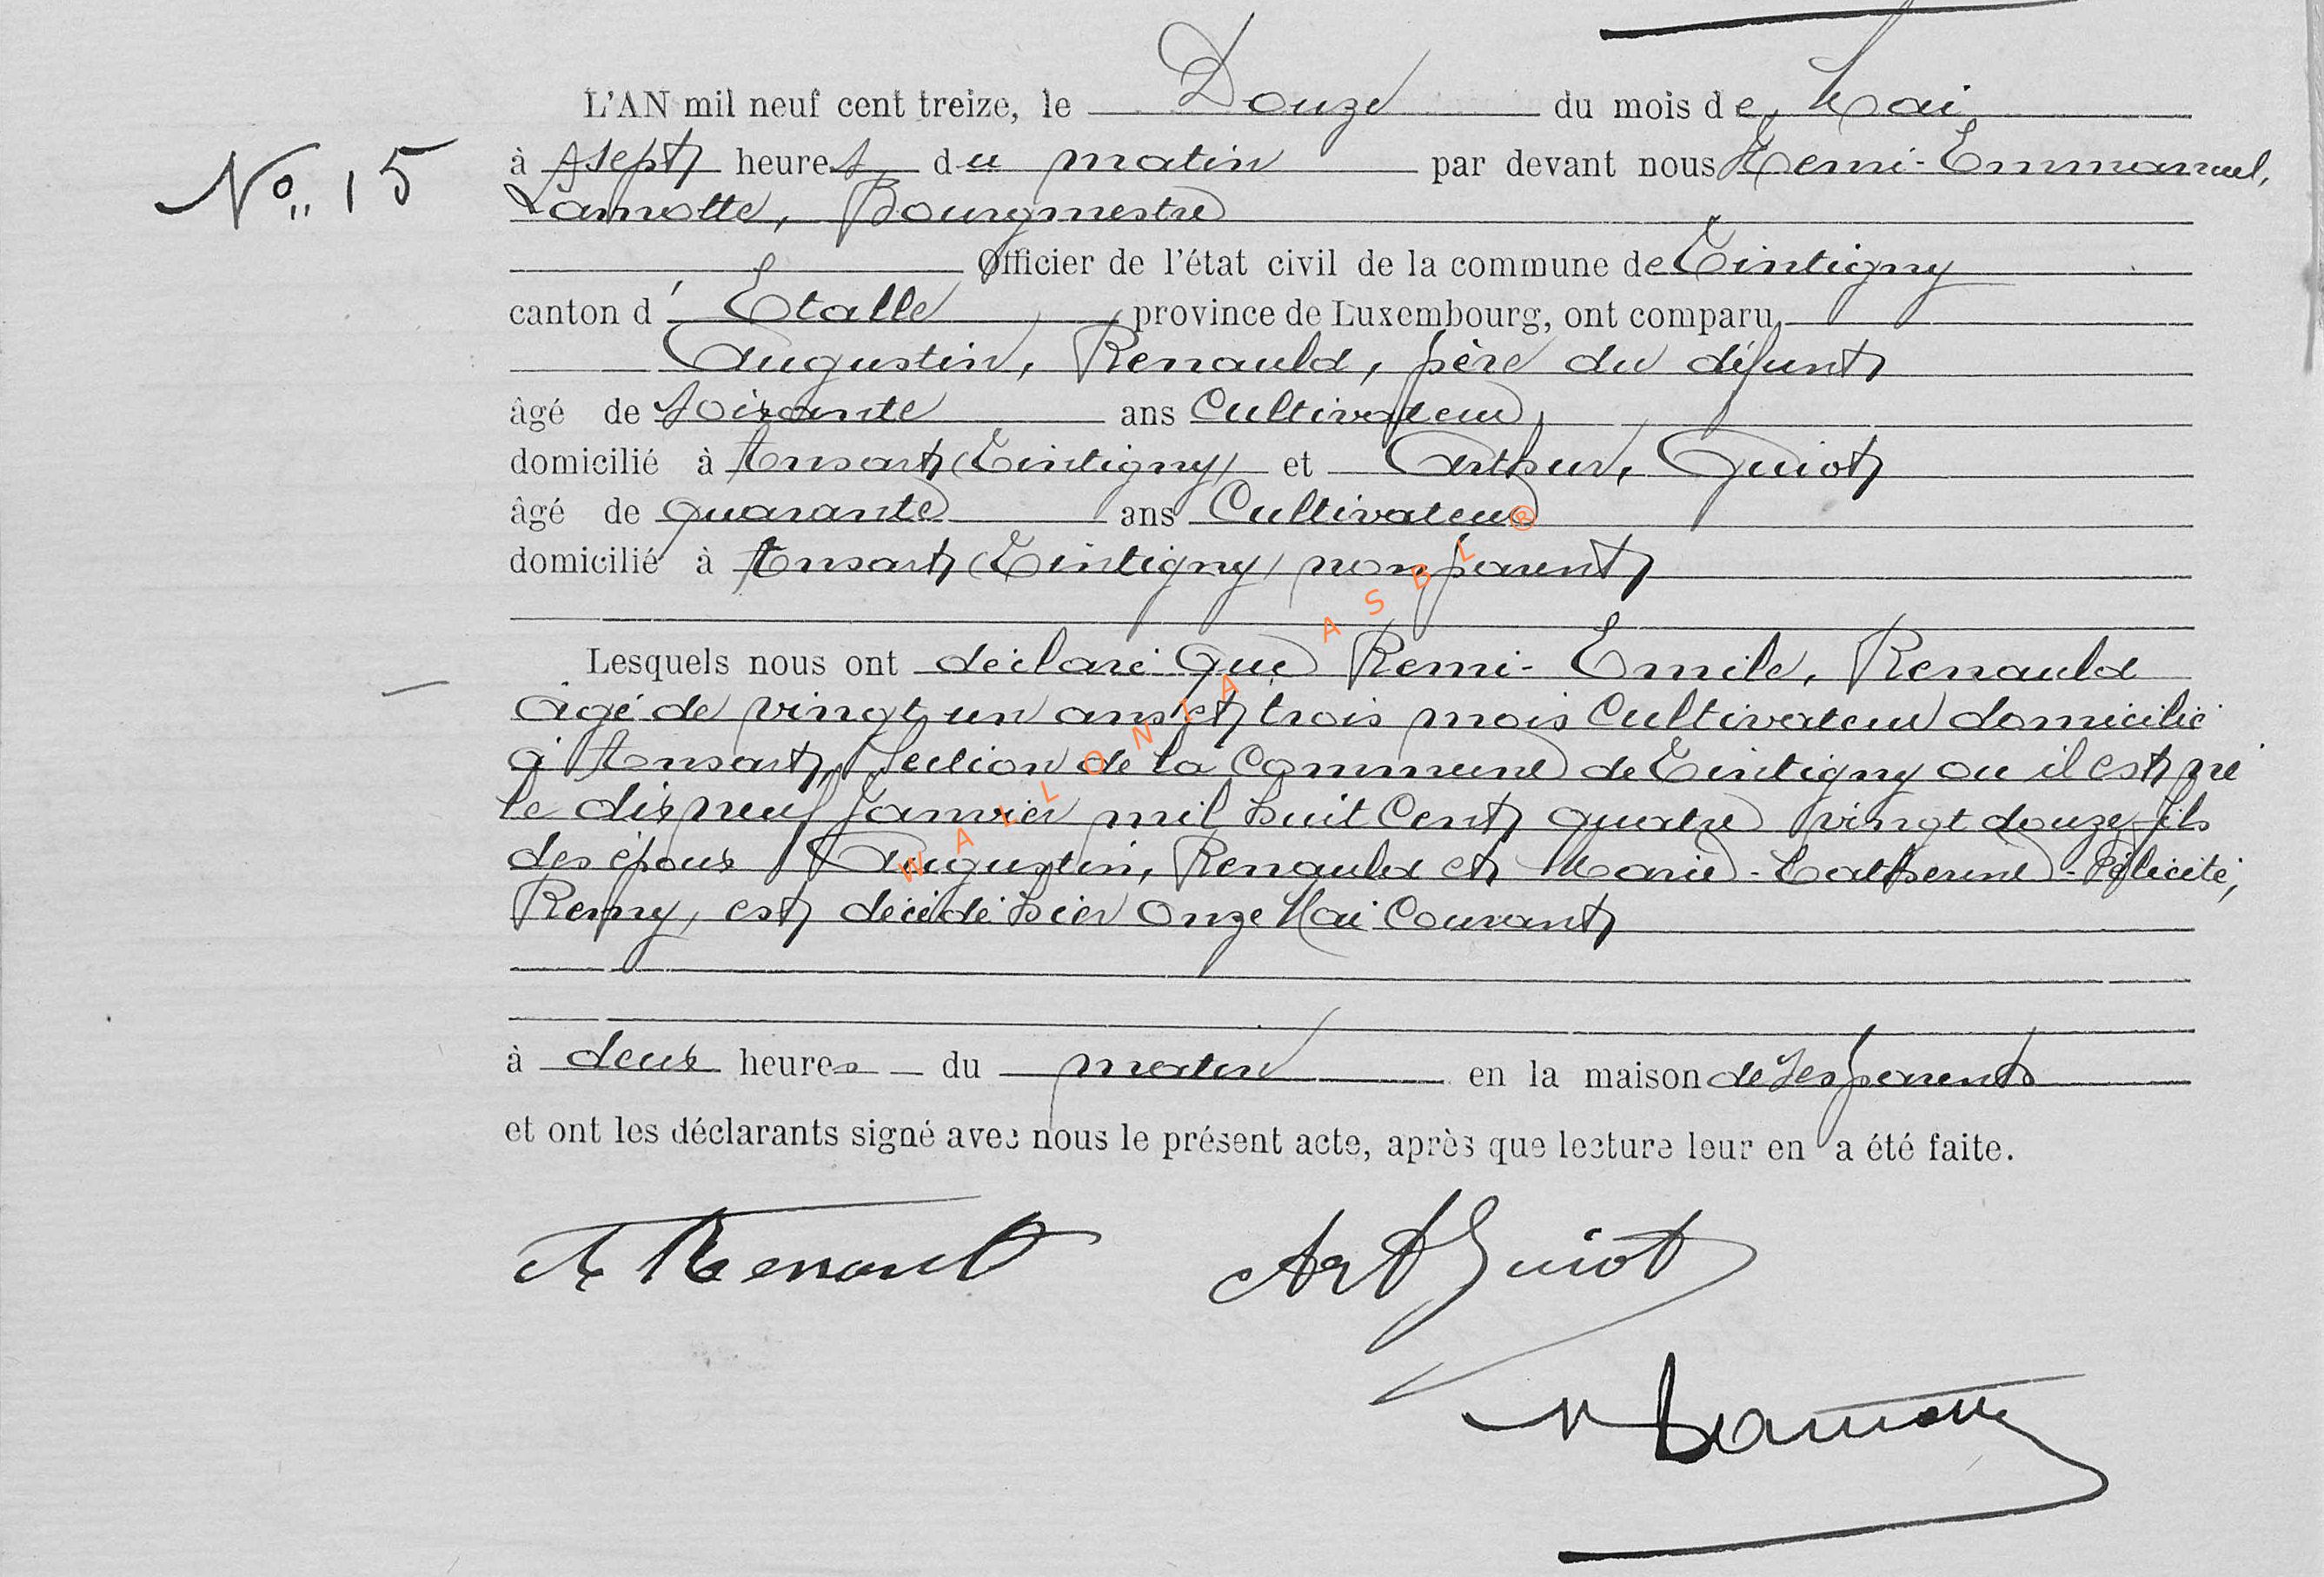 L'AN mil neuf cent treize, le Douze du mois de Mai
No 15
à sept heures du matin par devant nous Remi-Emmanuel,
Lamotte, Bourgmestre
Officier de l'état civil de la commune de Tintigny
canton d'Etalle province de Luxembourg, ont comparu
Augustin, Renauld, père du défunt
âgé de soixante ans Cultivateur
domicilié à Ansart (Tintigny) et Arthur, Guiot
âgé de quarante ans Cultivateur
domicilié à Ansart (Tintigny) non parent
Lesquels nous ont déclaré que Remi-Emile, Renauld
âgé de vingt un ans et trois mois Cultivateur domicilié
à Ansart, Section de la Commune de Tintigny ou il est né
le dix neuf Janvier mil huit Cent quatre vingt douze, fils
des époux Augustin, Renauld et Marie-Catherine-Félicité,
Remy, est décédé hier Onze Mai Courant
à deux heures du matin en la maison de ses parents
et ont les déclarants signé avec nous le présent acte, après que lecture leur en a été faite.
A Renauld Art Guiot
Lamotte
WALLONIA ASBL ®